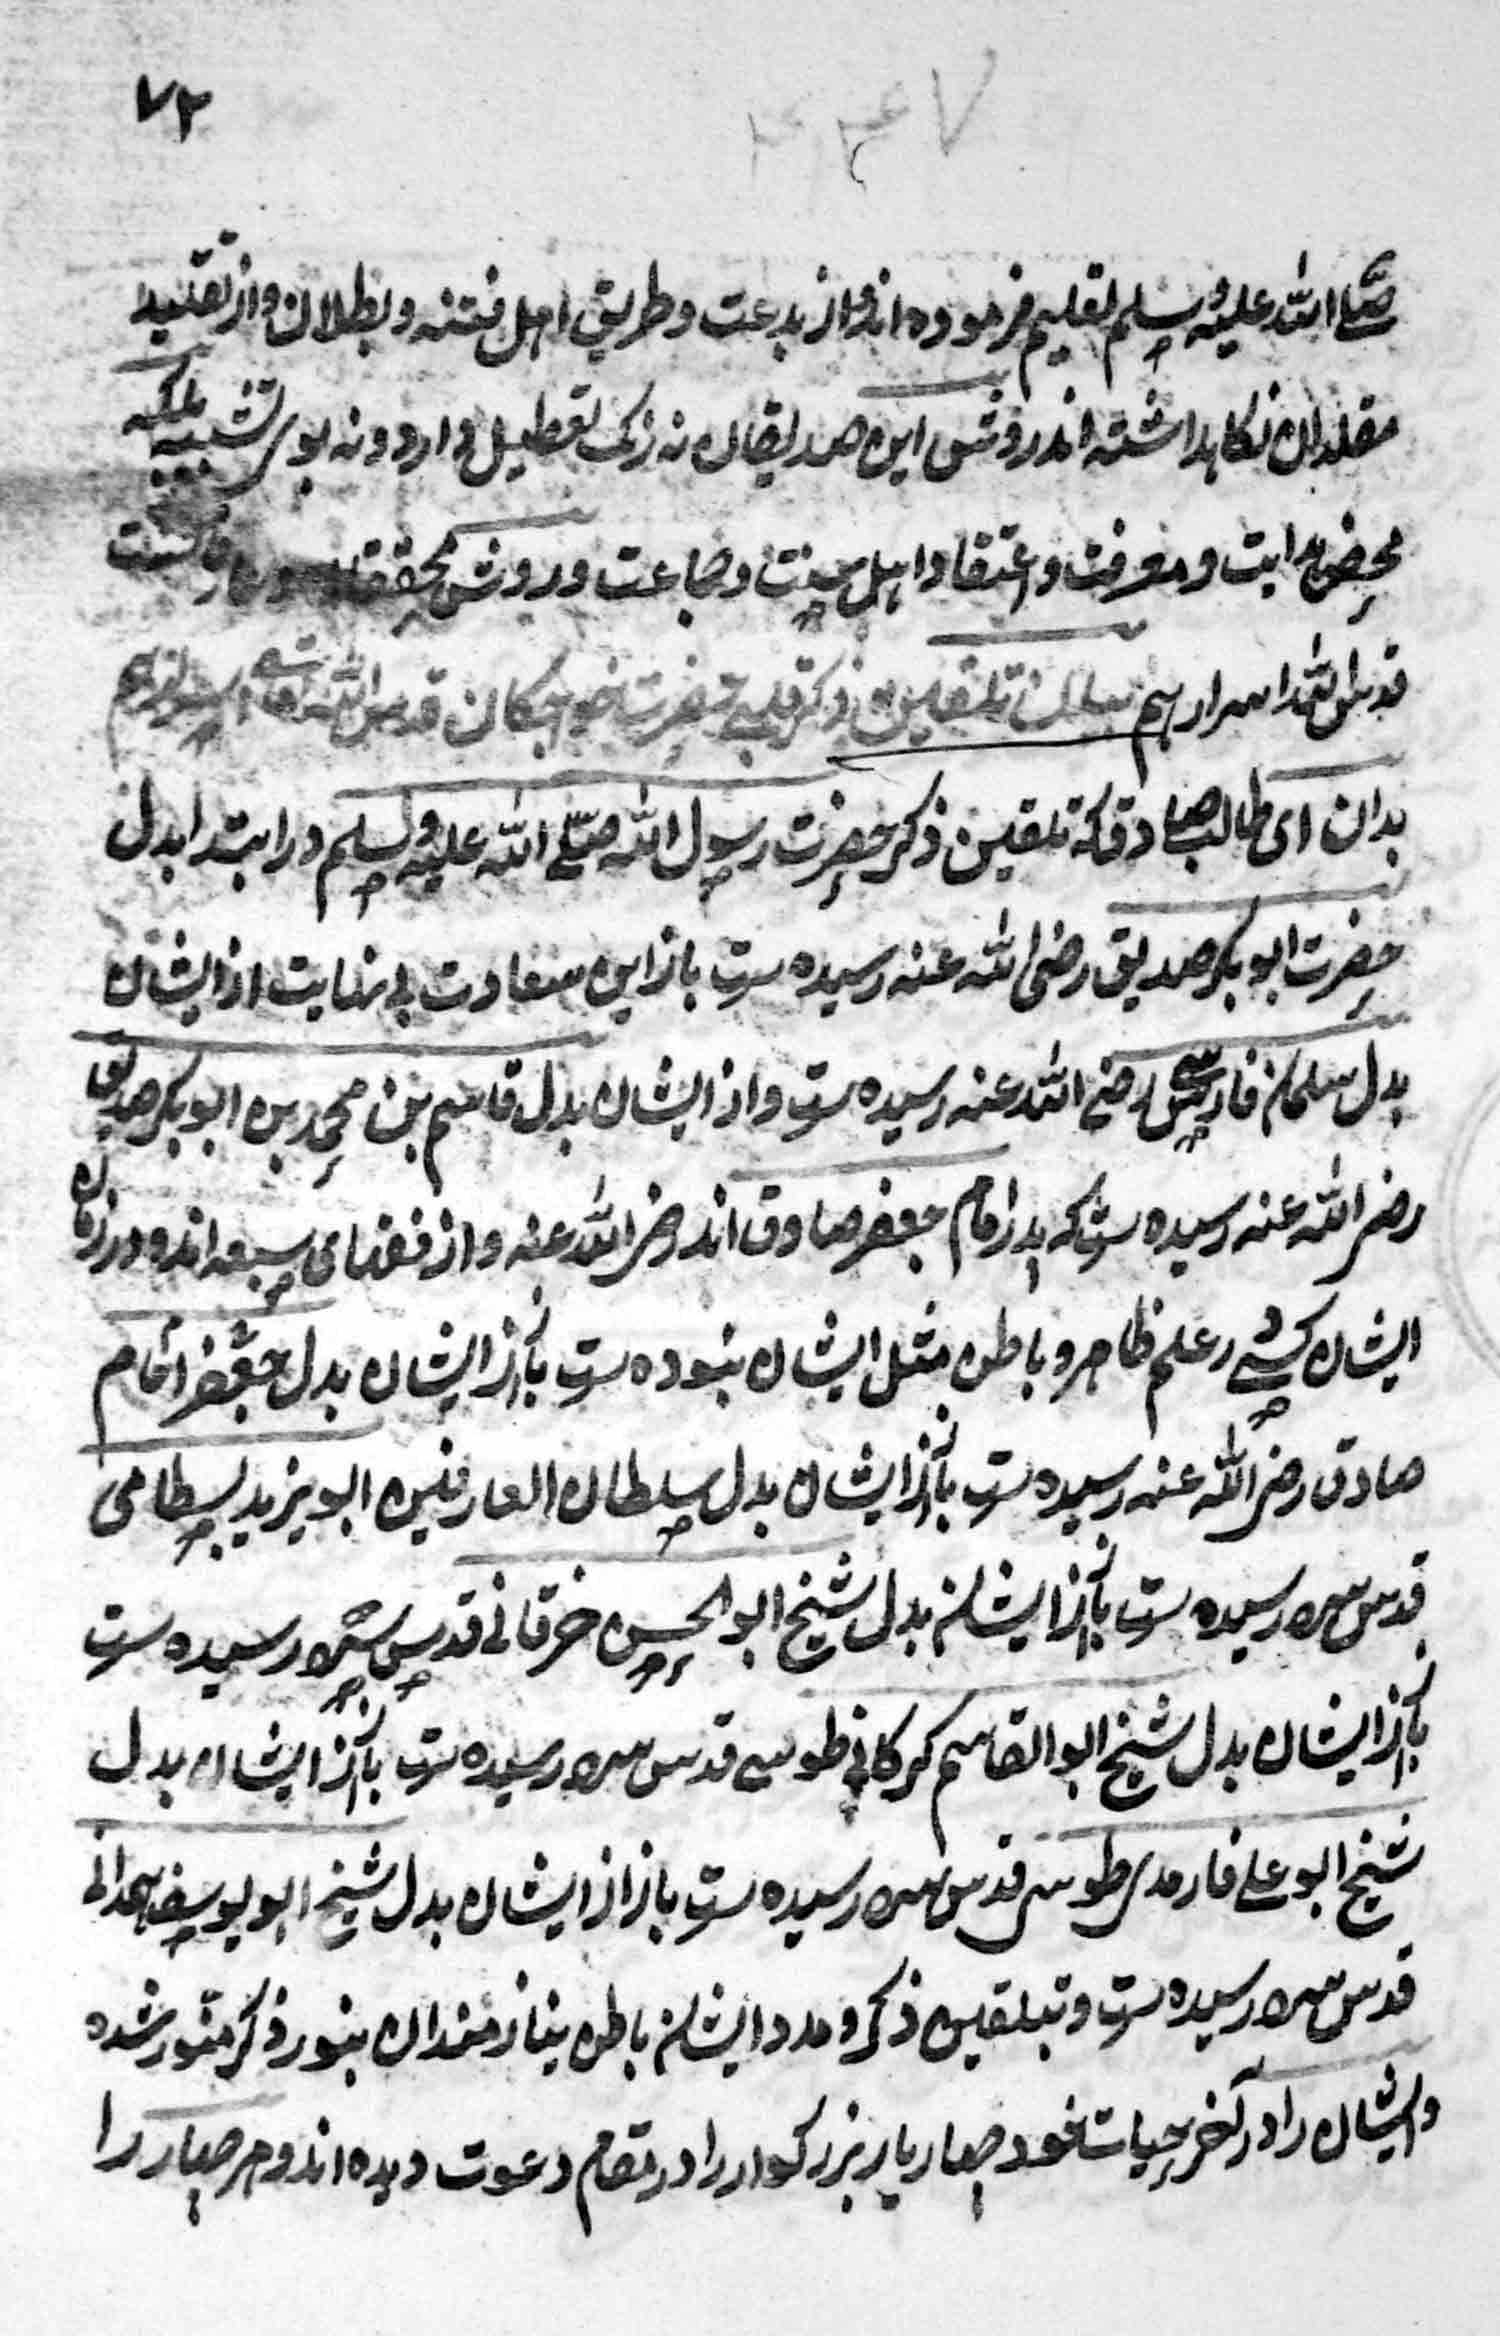 ۷۲
صلی الله علیه وسلم تعلیم فرموده اند و از بدعت و طریق اهل فتنه و بطلان و از تقلید
مقلدان نکاهداشته اند روش این صدیقان نه رنک تعطیل دارد و نه بوی تشبیه بلکه
محض هدایت و معرفت و اعتقاد اهل سنت و جماعت و روش محققان و عارفانست
قدس الله اسرارهم سلسله تلقین ذکر قلبی حضرت خواجکان قدس الله تعالی اسرارهم
بدان ای طالب صادق که تلقین ذکر حضرت رسول الله صلی الله علیه وسلم در ابتدا بدل
حضرت ابوبکر صدیق رضی الله عنه رسیده ست باز این سعادت بی نهایت از ایشان
بدل سلمان فارسی رضی الله عنه رسیده ست و از ایشان بدل قاسم بن محمد بن ابوبکر صدیق
رضی الله عنه رسیده ست که پدر امام جعفر صادق اند رضی الله عنه و از فقهای سبعه اند و در زمان
ایشان کسی در علم ظاهر و باطن مثل ایشان نبوده ست باز از ایشان بدل جعفر امام
صادق رضی الله عنه رسیده ست باز از ایشان بدل سلطان العارفین ابو یزید بسطامی
قدس سره رسیده ست باز از ایشان بدل شیخ ابو الحسن خرقانی قدس سره رسیده ست
باز از ایشان بدل شیخ ابو القاسم کرکانی طوسی قدس سره رسیده ست باز از ایشان بدل
شیخ ابو علی فارمدی طوسی قدس سره رسیده ست باز از ایشان بدل شیخ ابو یوسف همدانی
قدس سره رسیده ست و بتلقین ذکر و مدد ایشان باطن نیازمندان بنور ذکر منور شده
و ایشان را در آخر حیات خود چهار یار بزرکوار را در مقام دعوت دیده اند و هر چهار را